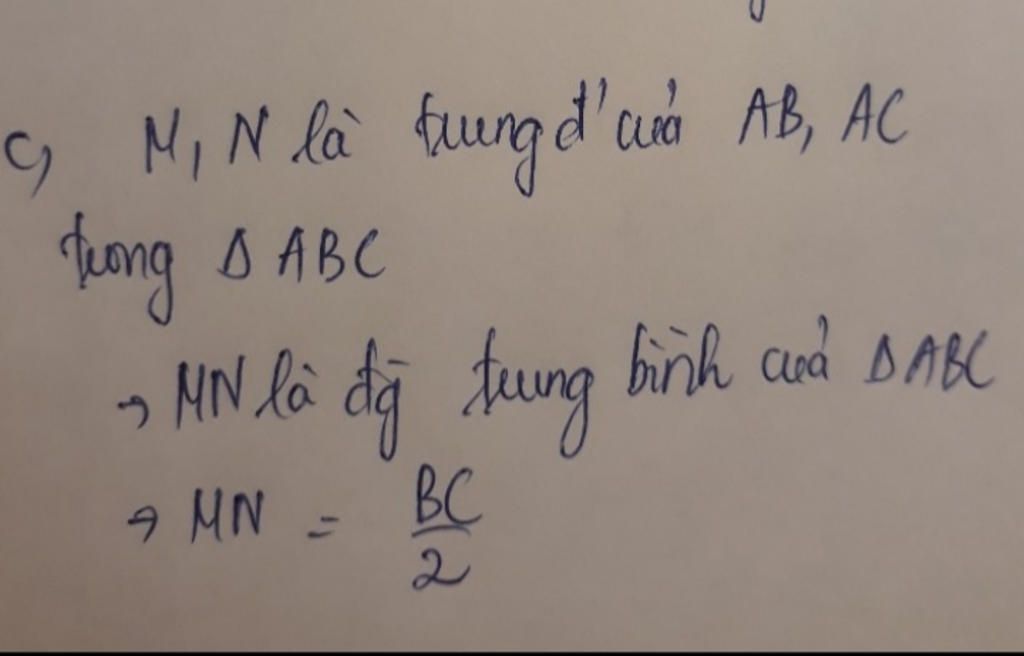 c, M, N là trung đ' của AB, AC
trong Δ ABC
→ MN là đg̃ trung bình của Δ ABC
→ MN = BC/2